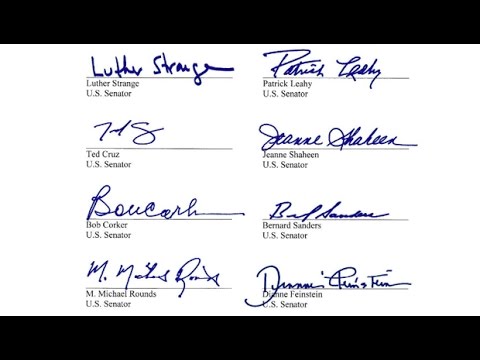 Luther Strange
Luther Strange
U.S. Senator
Patrick Leahy
Patrick Leahy
U.S. Senator
Ted Cruz
U.S. Senator
Jeanne Shaheen
Jeanne Shaheen
U.S. Senator
Bob Corker
U.S. Senator
Sanders
Bernard Sanders
U.S. Senator
M. Michael Rounds
M. Michael Rounds
U.S. Senator
Dianne Feinstein
Dianne Feinstein
U.S. Senator